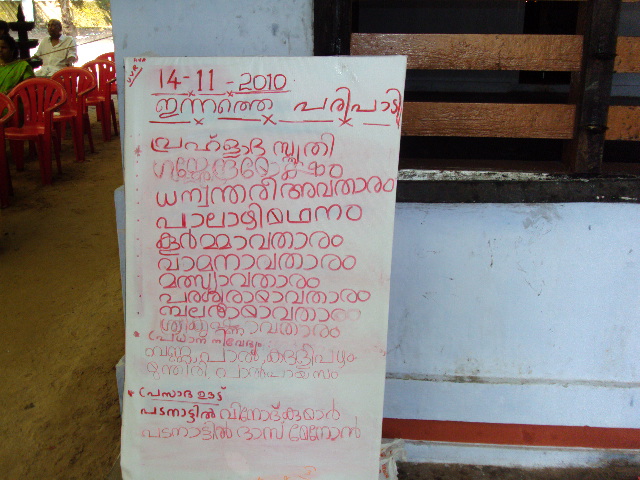 14-11-2010
ഇന്നത്തെ പരിപാടി
പ്രഹ്ളാദ സ്തുതി
ഗജേന്ദ്രമോക്ഷം
ധന്വന്തരീ അവതാരം
പാലാഴിമഥനം
കൂർമ്മാവതാരം
വാമനാവതാരം
മത്സ്യാവതാരം
പരശുരാമാവതാരം
ബലരാമാവതാരം
ശ്രീകൃഷ്ണാവതാരം
പ്രധാന നിവേദ്യം
വെണ്ണ, പാൽ, കദളിപ്പഴം
മുന്തിരി പാൽപായസം
പ്രസാദ ഊട്ട്
പടനാട്ടിൽ വിനോദ്കുമാർ
പടനാട്ടിൽ ദാസ് മേനോൻ